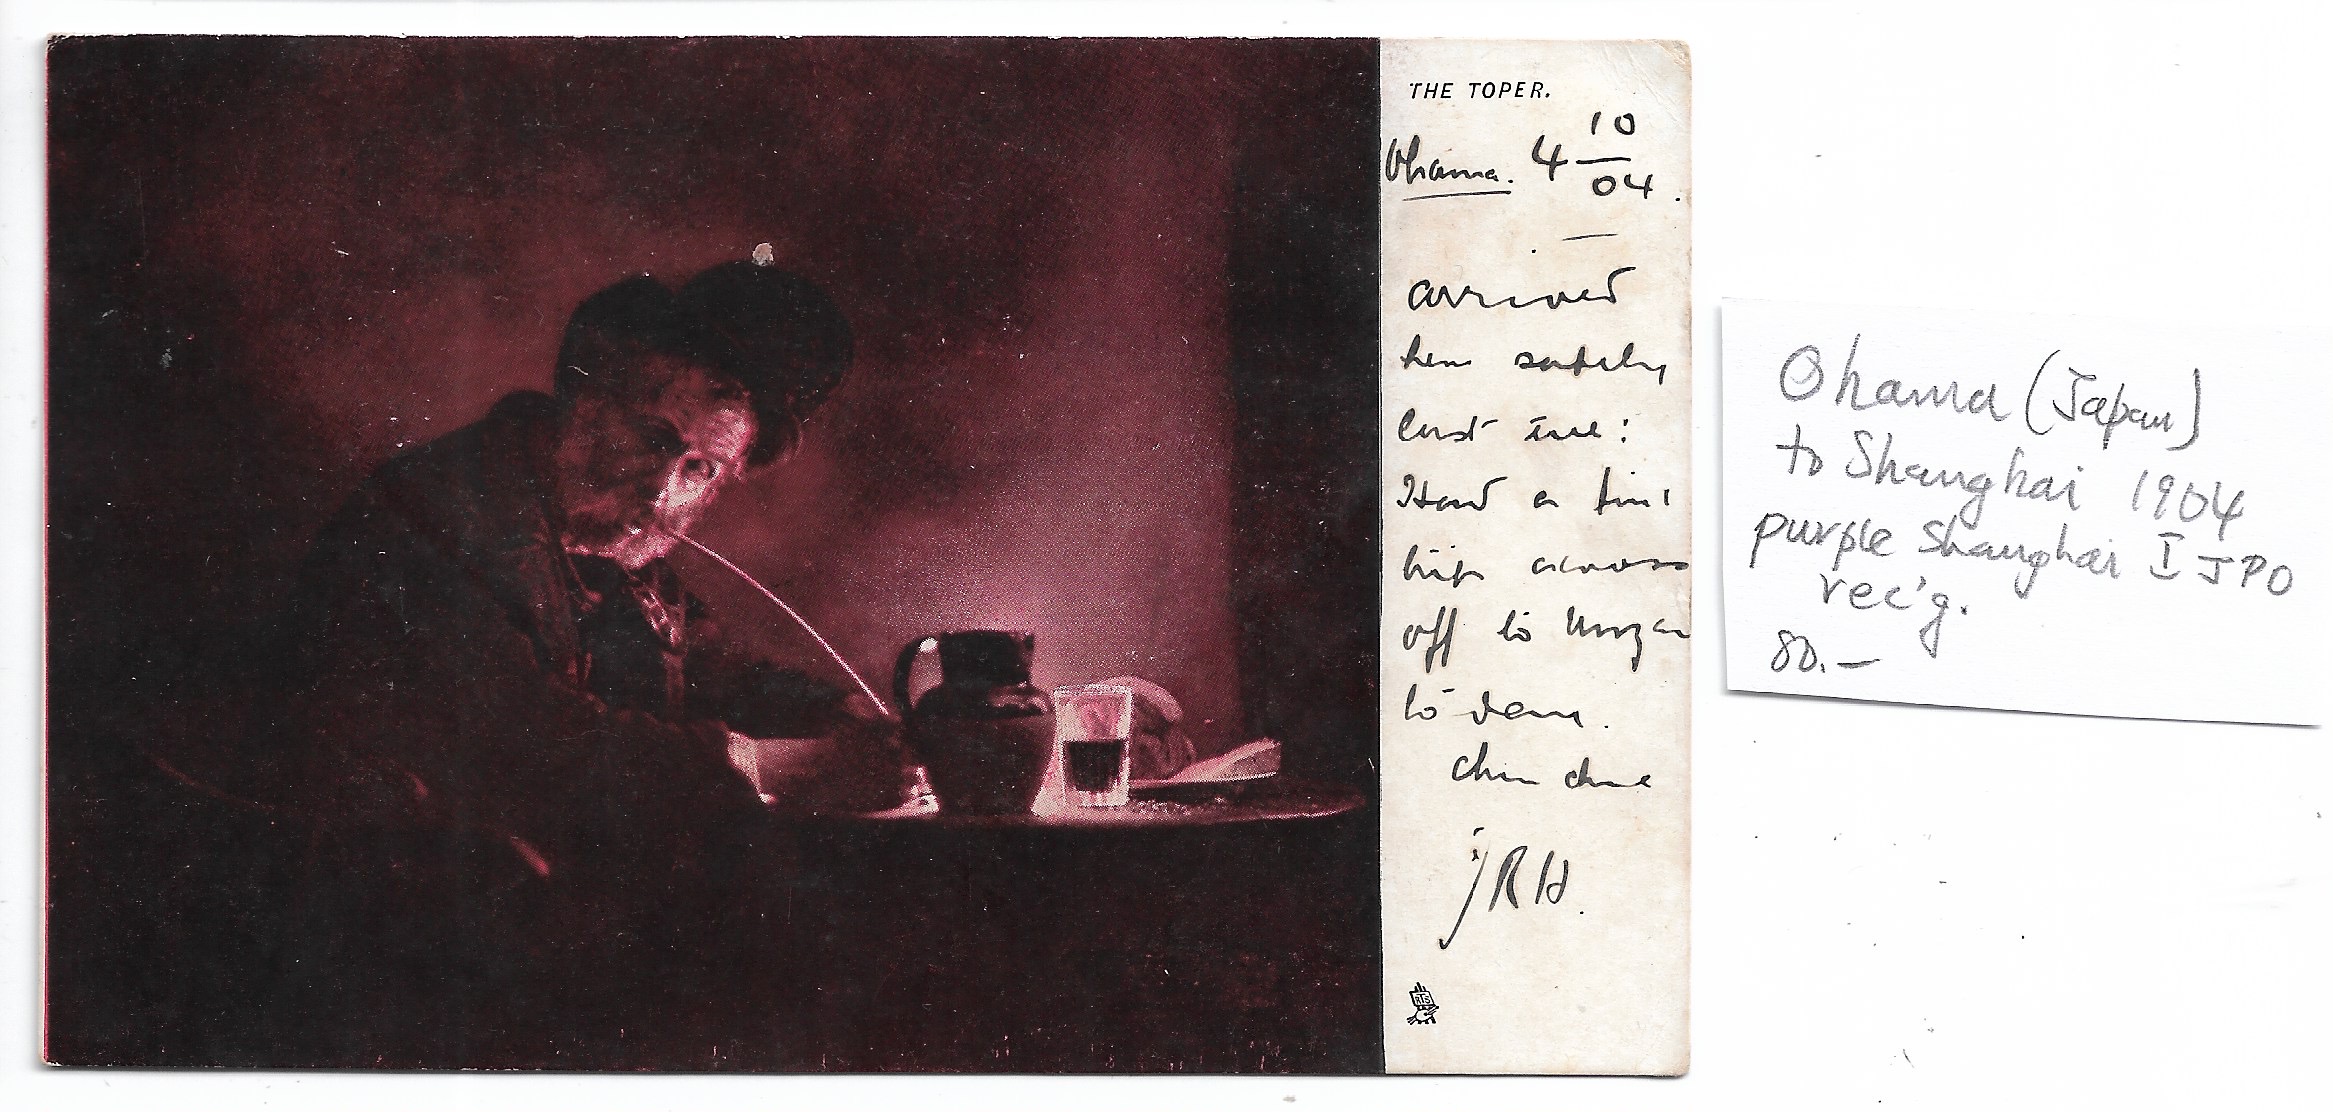 THE TOPER.
Ohama. 4 10/04.
arrived
here safely
last eve:
Had a fine
trip across
off to Unzen
to
chin chin
JRH.
RTS
Ohama (Japan)
to Shanghai 1904
purple Shanghai I JPO
rec'g.
80.—